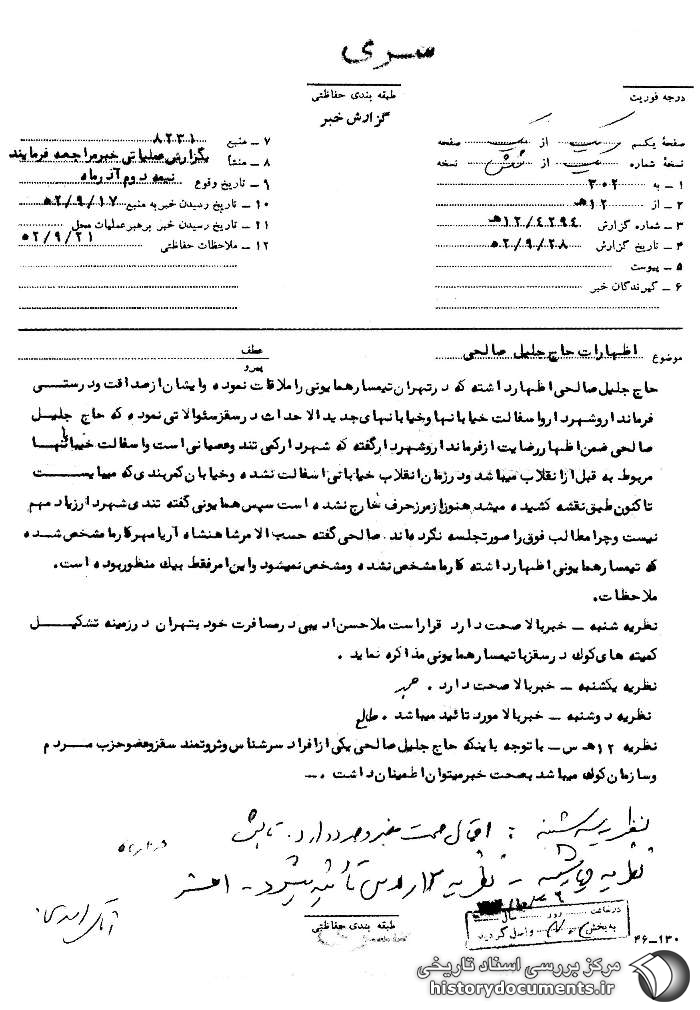 سری
طبقه بندی حفاظتی
گزارش خبر
درجه فوریت
صفحهٔ یکم یک از یک صفحه
نسخهٔ شماره یک از شش نسخه
۱ ـ به ۳۰۲
۲ ـ از ۱۲هـ
۳ ـ شماره گزارش ۱۲/۴۲۹۴هـ
۴ ـ تاریخ گزارش ۵۲/۹/۲۸
۵ ـ پیوست
۶ ـ گیرندگان خبر
۷ ـ منبع ۸۲۳۱
۸ ـ منشأ بگزارش عملیاتی خبر مراجعه فرمایند
۹ ـ تاریخ وقوع نیمه دوم آذرماه
۱۰ ـ تاریخ رسیدن خبر به منبع ۵۲/۹/۱۷
۱۱ ـ تاریخ رسیدن خبر برهبر عملیات محل ۵۲/۹/۲۱
۱۲ ـ ملاحظات حفاظتی
موضوع اظهارات حاج جلیل صالحی
عطف
پیرو
حاج جلیل صالحی اظهار داشته که در تهران تیمسار همایونی را ملاقات نموده و ایشان از صداقت و درستی
فرماندار و شهردار و اسفالت خیابانها و خیابانهای جدید الاحداث در سقز سئوالاتی نموده که حاج جلیل
صالحی ضمن اظهار رضایت از فرماندار و شهردار گفته که شهردار کمی تند و عصبانی است و اسفالت خیابانها
مربوط به قبل از انقلاب میباشد و در زمان انقلاب خیابانی اسفالت نشده و خیابان کمربندی که میبایست
تاکنون طبق نقشه کشیده میشد هنوز از مرز حرف خارج نشده است سپس همایونی گفته تندی شهردار زیاد مهم
نیست و چرا مطالب فوق را صورتجلسه نکرده اند. صالحی گفته حسب الامر شاهنشاه آریامهر کار ما مشخص شده
که تیمسار همایونی اظهار داشته کار ما مشخص نشده و مشخص نمیشود و این امر فقط بیک منظور بوده است.
ملاحظات.
نظریه شنبه ـ خبر بالا صحت دارد قرار است ملا حسن ادیبی در مسافرت خود بتهران در زمینه تشکیل
کمیته های کوک در سقز با تیمسار همایونی مذاکره نماید.
نظریه یکشنبه ـ خبر بالا صحت دارد.
نظریه دوشنبه ـ خبر بالا مورد تائید میباشد. طالع
نظریه ۱۲هـ س ـ با توجه باینکه حاج جلیل صالحی یکی از افراد سرشناس و ثروتمند سقز و عضو حزب مردم
و سازمان کوک میباشد بصحت خبر میتوان اطمینان داشت.ـ
نظریه سه شنبه : احتمال صحت خبر وجود دارد. تابش
نظریه چهارشنبه ـ نظریه ۱۲هـ س تأئید میشود ـ افشار
طبقه بندی حفاظتی
در ساعت روز سال
به بخش واصل گردید
۴۶ـ۱۳۰
مرکز بررسی اسناد تاریخی
historydocuments.ir